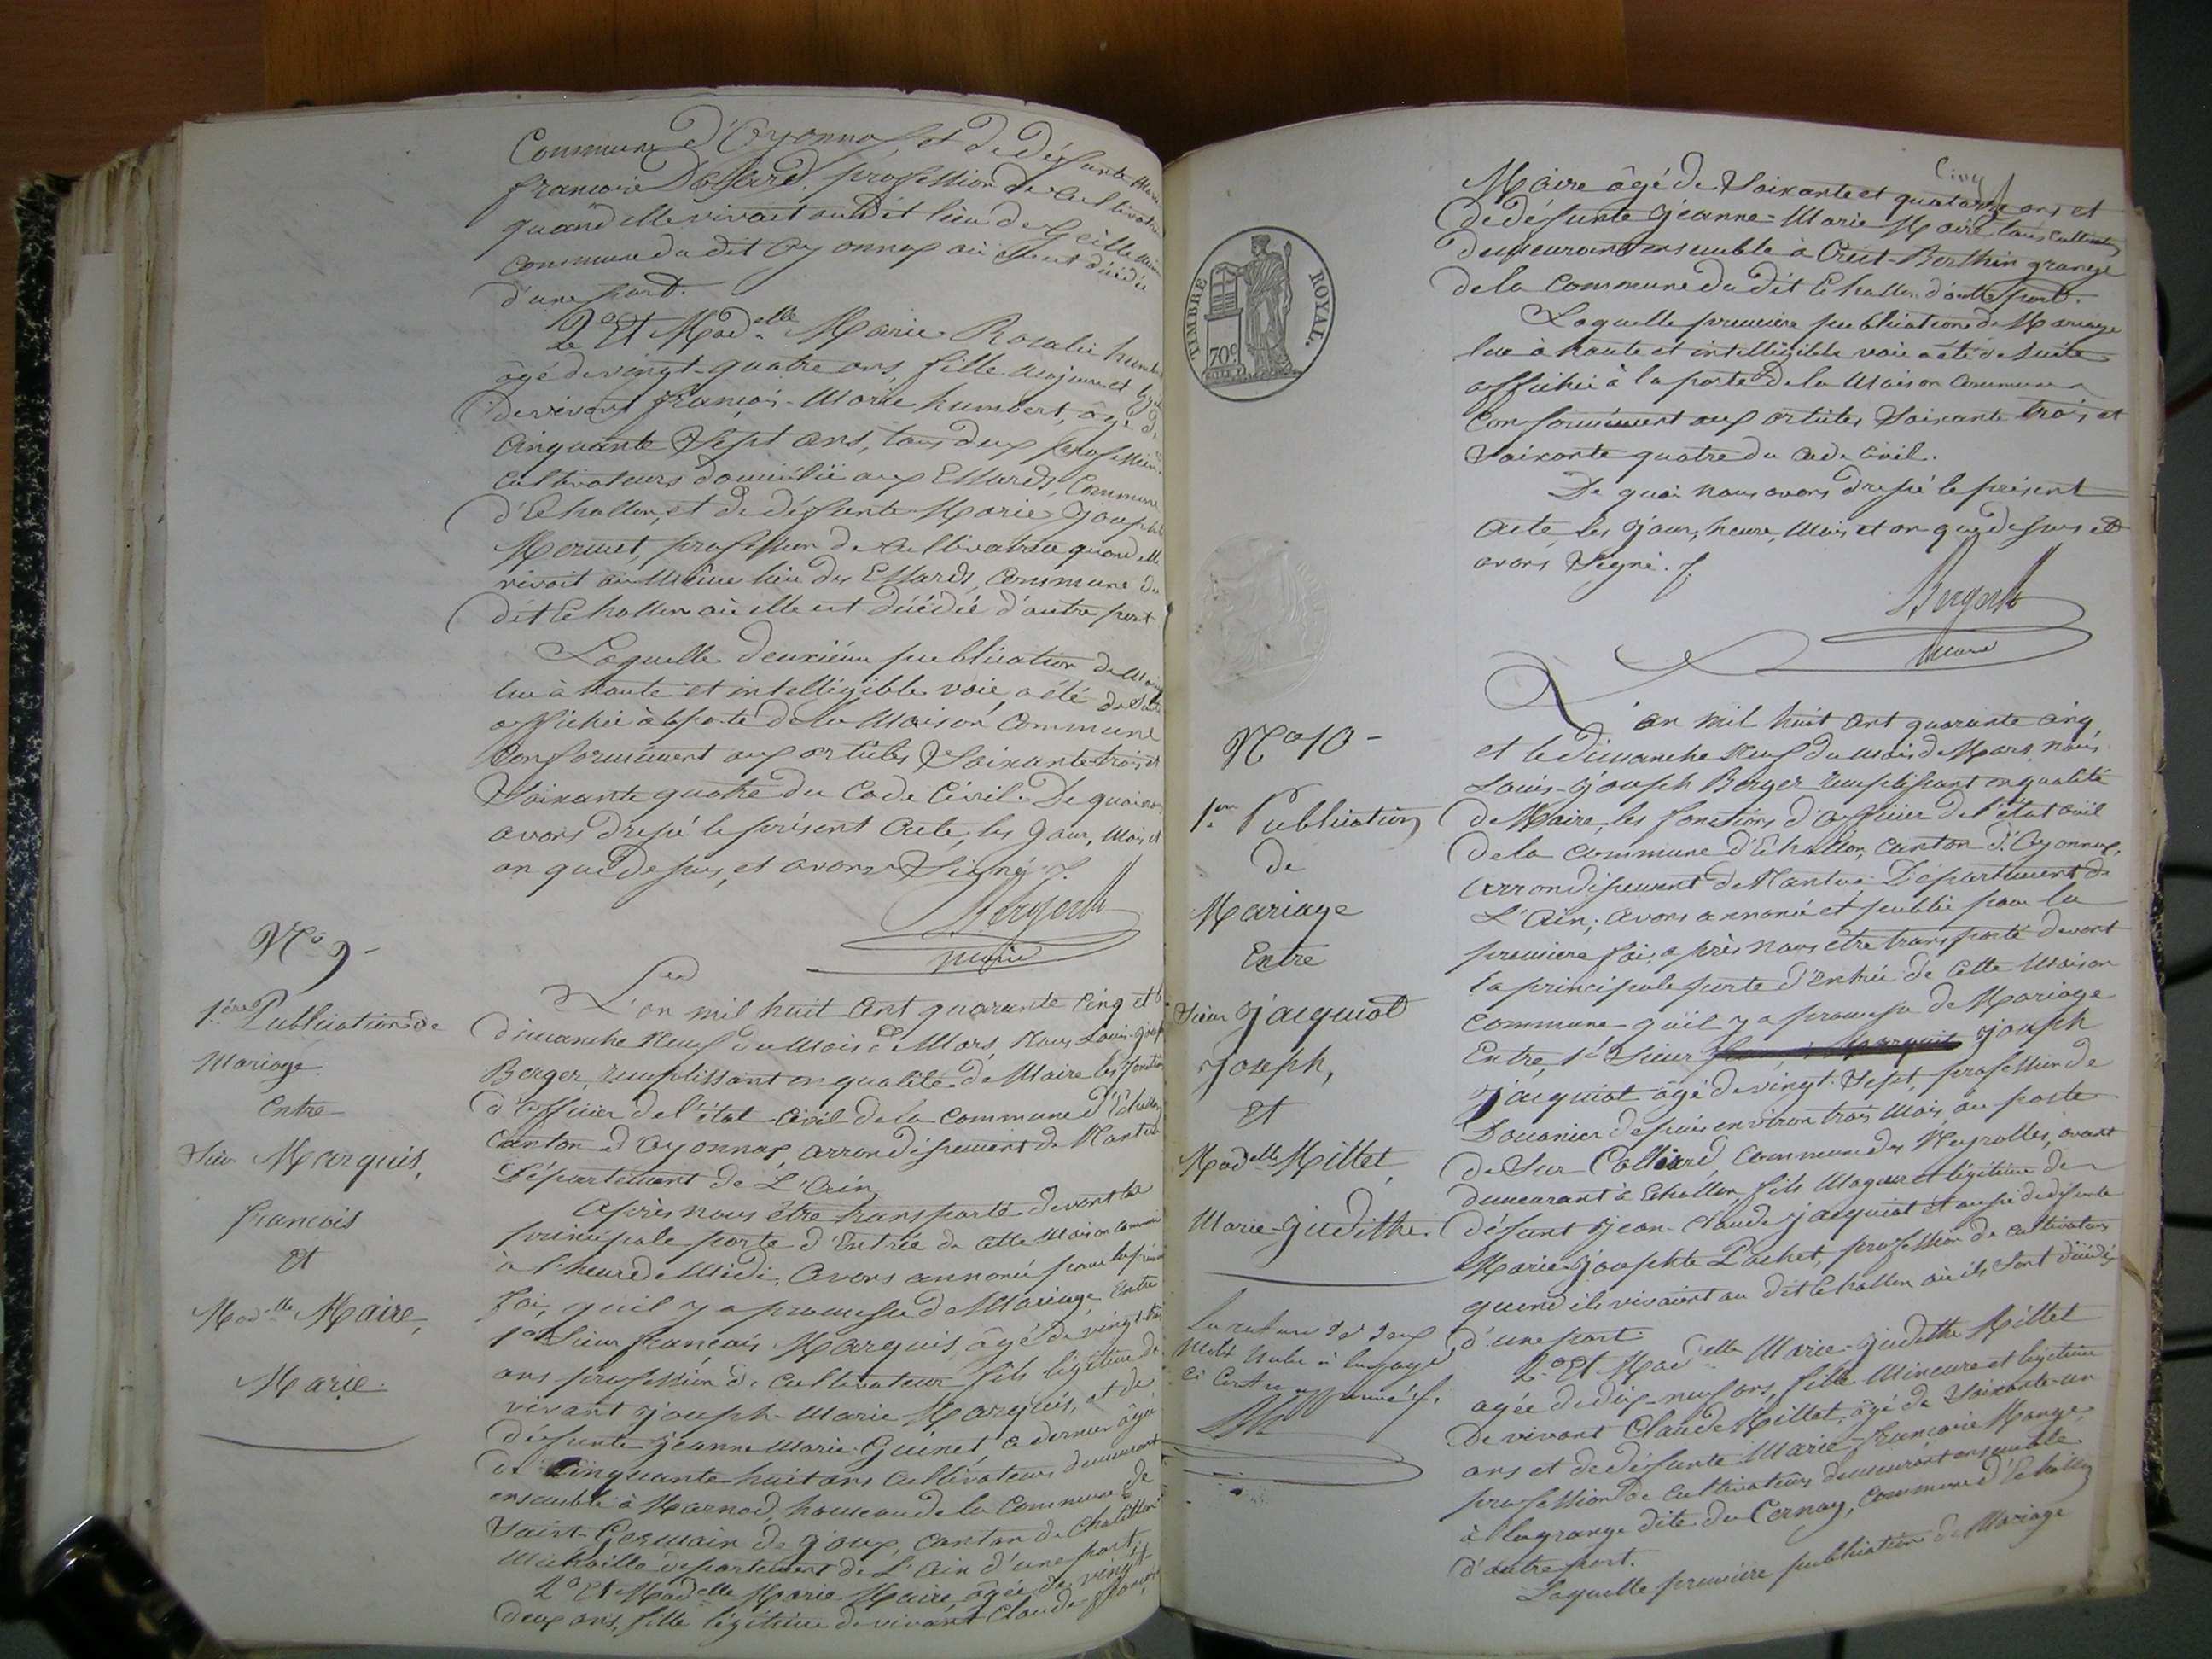 Commune d'Oyonnax, et de défunte Marie
françoise Dassard, profession de Cultivatrice
quand elle vivait au dit lieu de Geille
Commune du dit Oyonnax où elle est décédée
d'une part.
2° Et Mad.elle Marie Rosalie humbert
âgé de vingt-quatre ans, fille majeure et
de vivant françois-Marie humbert, âgé de
Cinquante Sept ans, tous deux profession
Cultivateurs domicilié aux Essards, Commune
d'Echallon, et de défunte Marie Josephte
Mermet, profession de Cultivatrice quand elle
vivait au même lieu des Essards, Commune du
dit Echallon où elle est décédée d'autre part
Laquelle deuxième publication de Mariage
lue à haute et intelligible voix, a été de suite
affichée à la porte de la Maison Commune
Conformément aux articles Soixante-trois et
Soixante quatre du Code Civil. De quoi nous
avons dressé le présent acte, les Jour, Mois et
an que dessus, et avons Signé.
Berger
Maire
N° 9-
1.ère Publication de
Mariage
Entre
Sieur Marquis,
françois
Et
Mad.elle Maire,
Marie.
L'an mil huit cent quarante cinq et le
dimanche neuf du Mois de Mars, Nous Louis-Joseph
Berger, remplissant en qualité de Maire les fonctions
d'officier de l'état-Civil de la commune d'Echallon
Canton d'Oyonnax arrondissement de Nantua
Département de L'Ain
Après nous être transporté devant la
principale porte d'Entrée de cette Maison Commune
à l'heure de Midi, avons annoncé pour la première
fois, qu'il y a promesse de Mariage Entre
1° Sieur françois Marquis âgé de vingt-trois
ans profession de Cultivateur fils légitime de
vivant Joseph-Marie Marquis, et de
défunte Jeanne Marie Guinet, ce dernier âgé
de Cinquante huit ans Cultivateurs demeurant
ensemble à Marnod, hameau de la Commune de
Saint-Germain de Joux, Canton de Chatillon
Michaille département de L'Ain d'une part,
2° Et Mad.elle Marie Maire âgée de vingt-
deux ans, fille légitime de vivant Claude-françois
TIMBRE ROYAL
70c
Cinq
Maire âgé de Soixante et quatorze ans et
de défunte Jeanne-Marie Maire tous Cultivateurs
demeurant ensemble à Crêt-Berthin grange
de la Commune du dit Echallon d'autre part.
Laquelle première publication de Mariage
lue à haute et intelligible voix a été de suite
affichée à la porte de la Maison Commune
Conformément aux articles Soixante trois et
Soixante quatre du Code Civil.
De quoi nous avons dressé le présent
acte, les Jour, heure, Mois et an que dessus et
avons Signé.
Berger
Maire
N° 10-
1.ère Publication
de
Mariage
Entre
Sieur Jacquiot
Joseph,
Et
Mad.elle Millet,
Marie-Judithe.
L'an mil huit cent quarante cinq
et le Dimanche neuf du mois de Mars, nous
Louis-Joseph Berger remplissant en qualité
de Maire, les fonctions d'officier de l'état civil
de la commune d'Echallon, Canton d'Oyonnax,
arrondissement de Nantua Département de
L'Ain, avons annoncé et publié pour la
première fois, après nous être transporté devant
la principale porte d'Entrée de cette Maison
commune qu'il y a promesse de Mariage
Entre, 1° Sieur Joseph
Jacquiot âgé de vingt-Sept, profession de
Douanier depuis environ trois Mois au poste
de Sur Colliard, Commune des Neyrolles, avant
demeurant à Echallon, fils Majeur et légitime de
défunt Jean-Claude Jacquiot et aussi de défunte
Marie-Josephte Pochet, profession de cultivateurs
quand ils vivaient au dit Echallon où ils sont décédés
d'une part.
La rature de deux
Mots nuls à la page
Ci Contre approuvée.
2° Et Mad.elle Marie-Judithe Millet
agée de dix-neuf ans, fille Mineure et légitime
de vivant Claude Millet, âgé de Soixante-un
ans et de défunte Marie-françoise Monge,
profession de Cultivateurs demeurant ensemble
à la grange dite du Cernay, Commune d'Echallon
d'autre part.
Laquelle première publication de Mariage